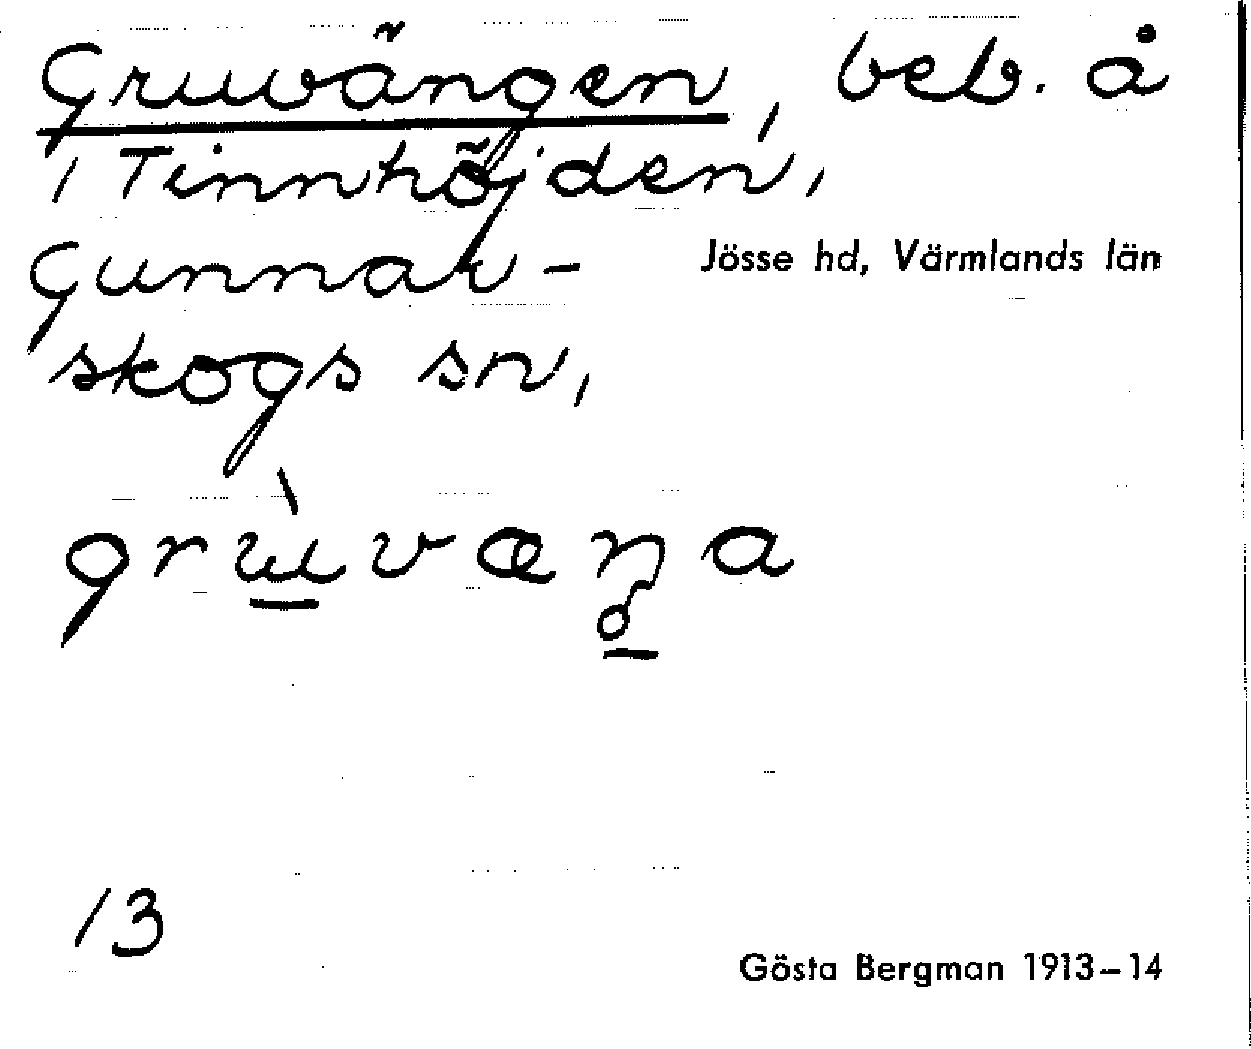 Gruvängen, beb. å
1 Tinnhöjden,
Gunnar-
Jösse hd, Värmlands län
skogs sn,
grùvæŋa
13
Gösta Bergman 1913-14